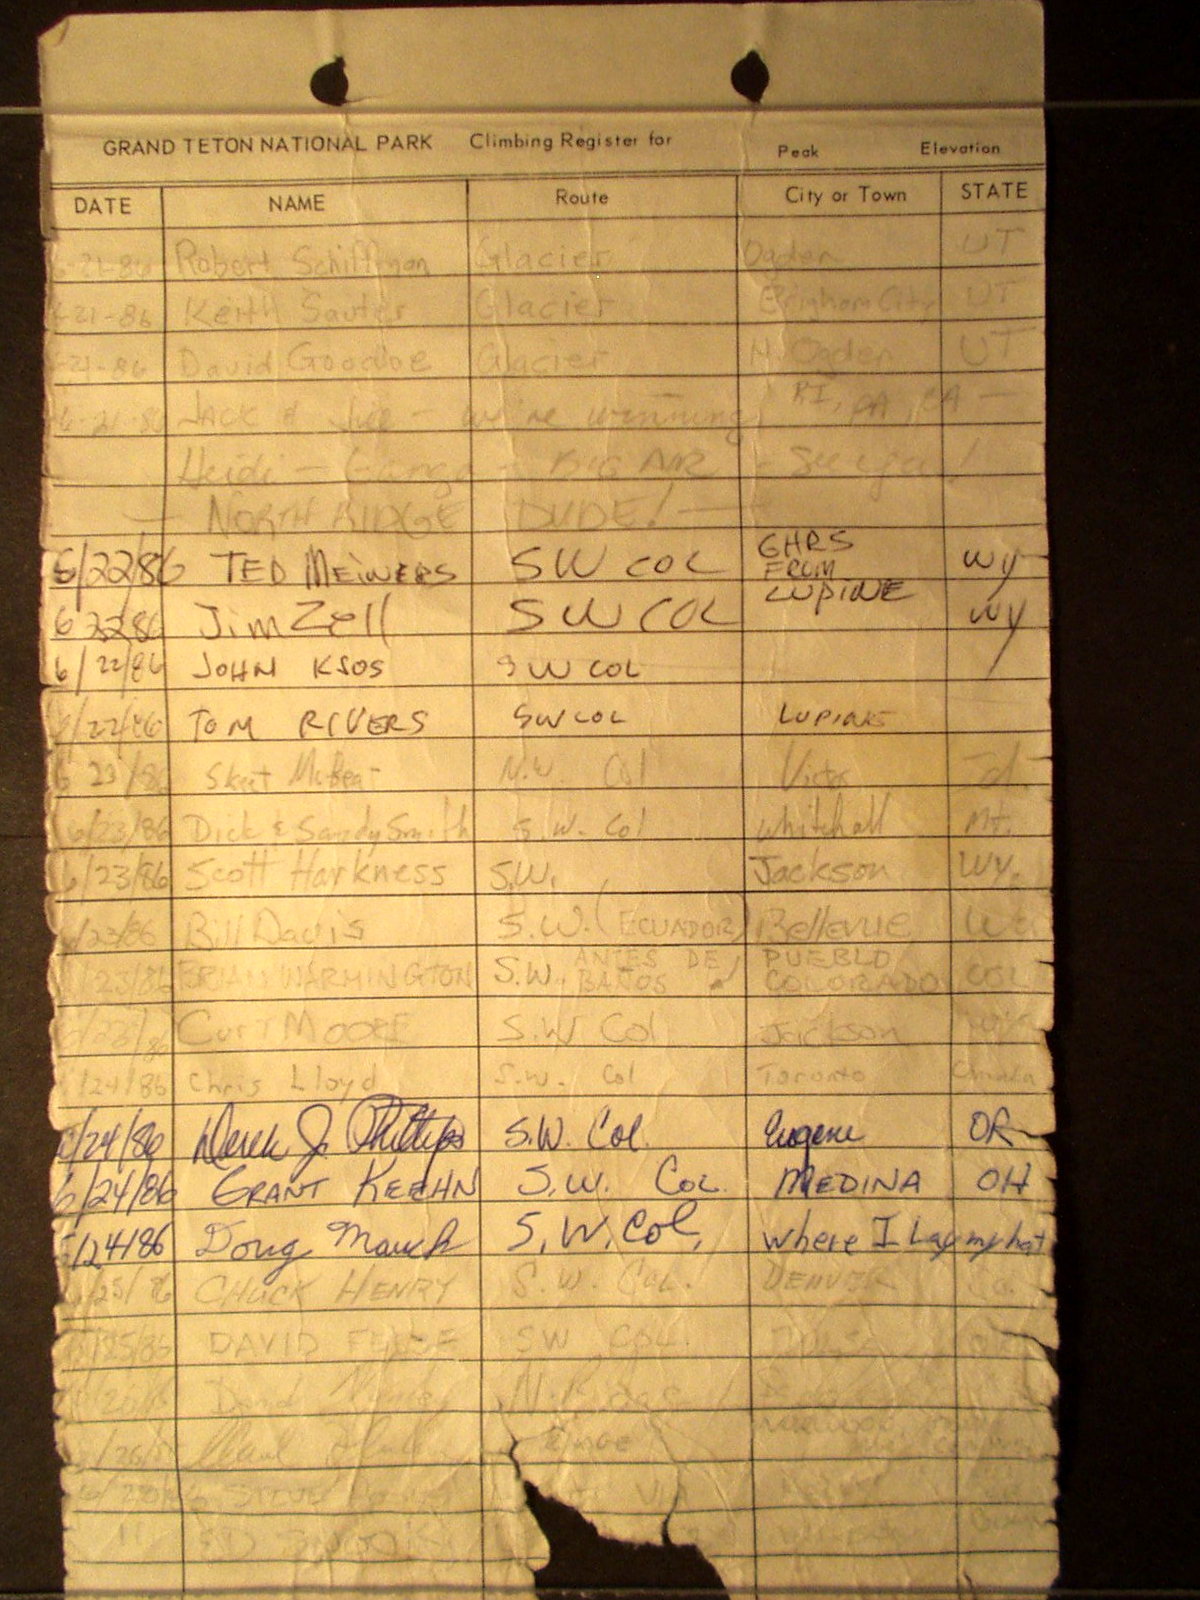 GRAND TETON NATIONAL PARK Climbing Register for Peak Elevation
DATE NAME Route City or Town STATE
6-21-86 Robert Schiffman Glacier Ogden UT
6-21-86 Keith Sauter Glacier Brigham City UT
6-21-86 David Goodloe Glacier N. Ogden UT
6-21-86 JACK & - we're winning RI, PA, CA -
Heidi - - BIG AIR - See ya!
- NORTH RIDGE DUDE! -
6/22/86 TED MEINERS SW COL 6HRS FROM LUPINE WY
6 22 86 Jim Zell SW COL WY
6/22/86 JOHN KSOS SW COL /
6/22/86 TOM RIVERS SW COL LUPINE
6 23/86 Skeet N.W. Col Victor Id.
6/23/86 Dick & Sandy Smith S.W. Col Whitehall Mt.
6/23/86 Scott Harkness S.W. Jackson Wy.
6/23/86 Bill Davis S.W. (ECUADOR) Bellevue Wa.
6/23/86 BRIAN WARMINGTON S.W. ANTES DE BAÑOS PUEBLO COLORADO COL
6/23/86 CURT MOORE S.W Col Jackson Wy
6/24/86 Chris Lloyd S.W. Col Toronto Canada
6/24/86 Derek J. Phillips S.W. Col. Eugene OR
6/24/86 GRANT KEEHN S.W. COL MEDINA OH
6/24/86 Doug March S.W. Col. where I lay my hat
6/25/86 CHUCK HENRY S.W. COL. DENVER Co.
6/25/86 DAVID SW COL. TULSA
David N. Ridge
6/26/
STEVE VIA
11 ED